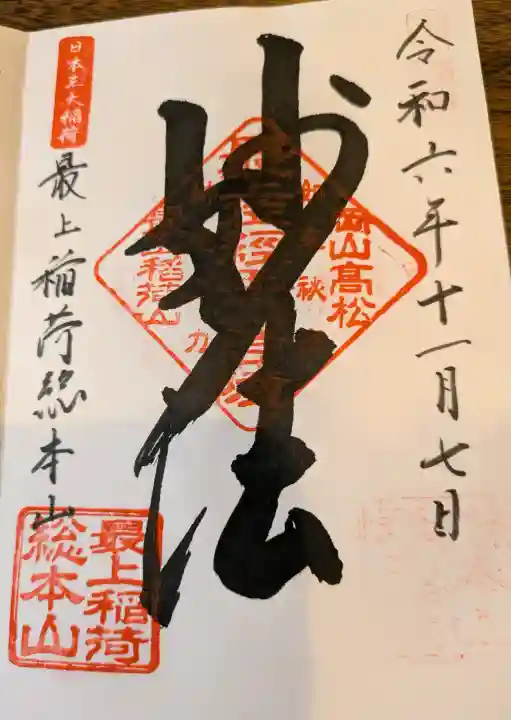 令和六年十一月七日
妙法
岡山高松
最上稲荷山
日本三大稲荷
最上稲荷総本山
最上稲荷
総本山